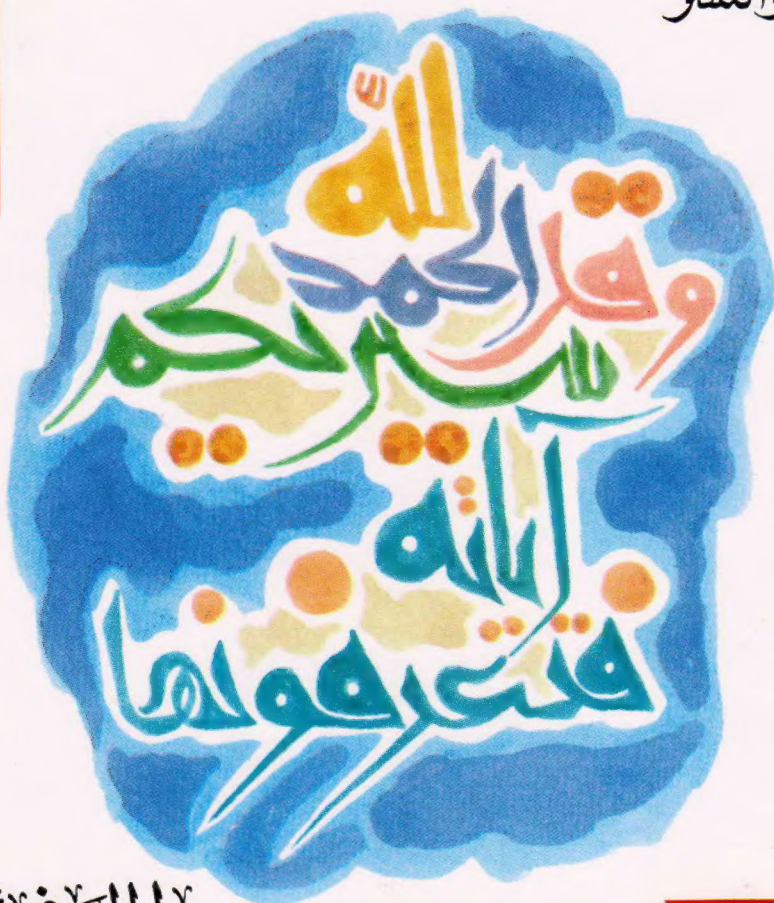 وقل الحمد لله
سيريكم
آياته
فتعرفونها